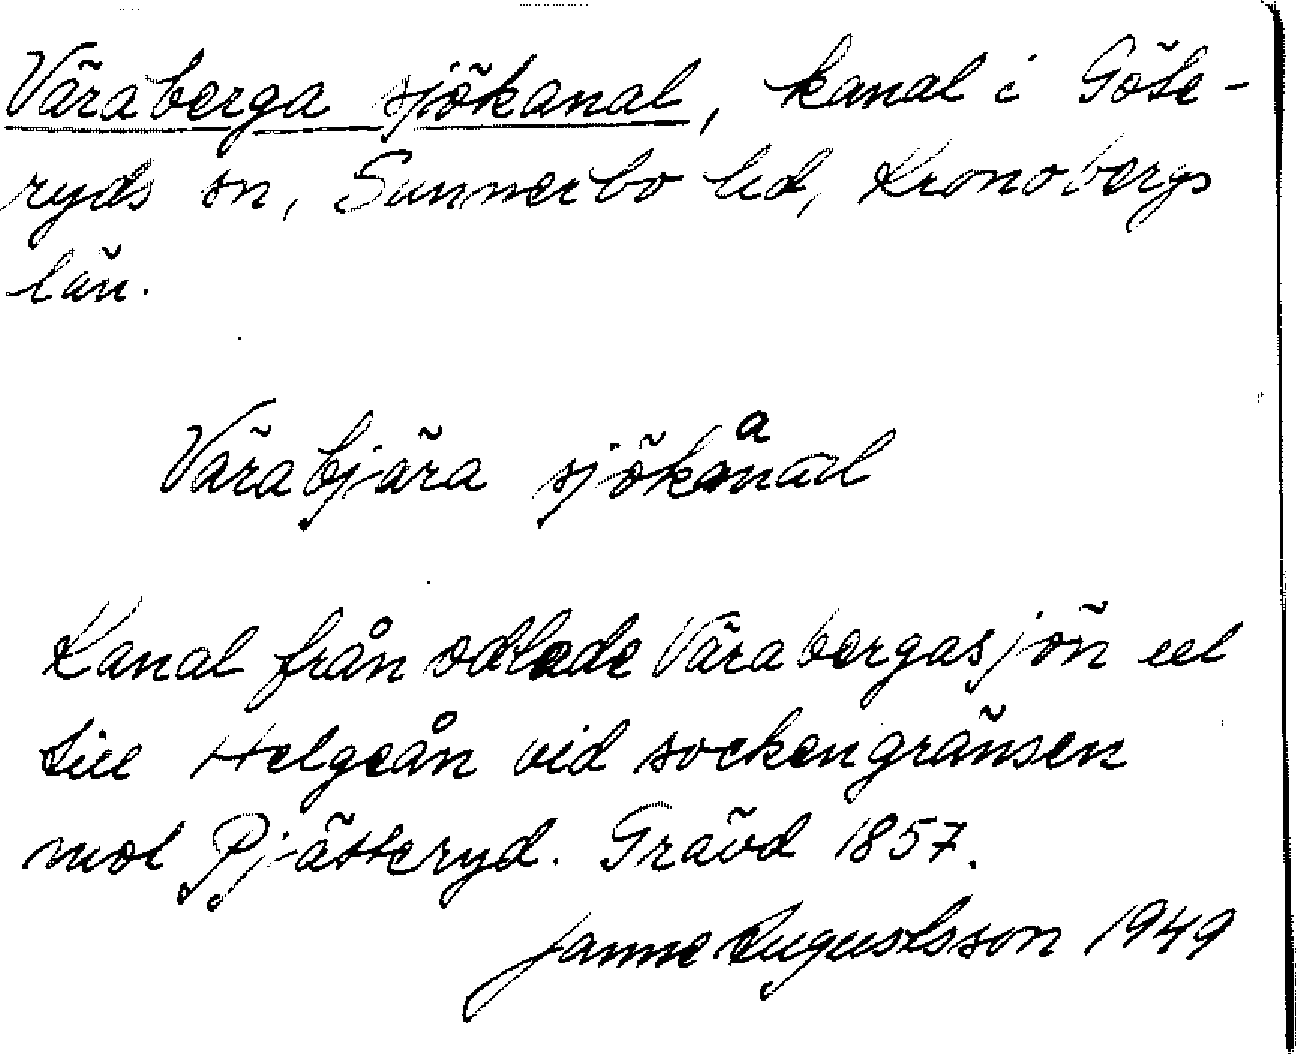 Väraberga sjökanal, kanal i Göte-
ryds sn, Sunnerbo hd, Kronobergs
län.
Värabjära sjökanal
Kanal från odlade Värabergasjön ut
till Helgeån vid sockengränsen
mot Pjätteryd. Grävd 1857.
Janne Augustsson 1949